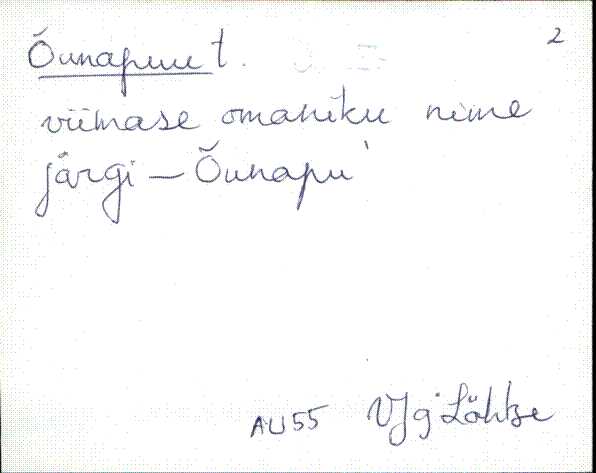 2
Õunapuu t.
viimase omaniku nime
järgi – Õunapu'
AU55 VJg Lähtse